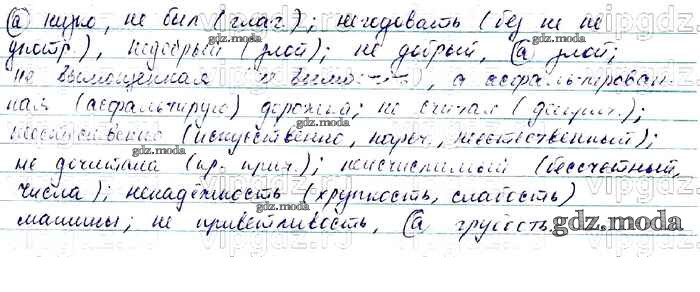 (а) нужно, не был (глаг.); негодовать (без не не
употр.), недобрый (злой); не добрый, (а) злой;
не вымощенная (не вымо), а асфальтирован-
ная (асфальтирую) дорожка; не считая (дееприч.);
неестественно (искусственно, нареч., неестественный);
не дочитана (кр. прич.); неисчислимый (бессчетный,
числа); ненадёжность (хрупкость, слабость)
машины; не приветливость, (а) грубость.
gdz.moda